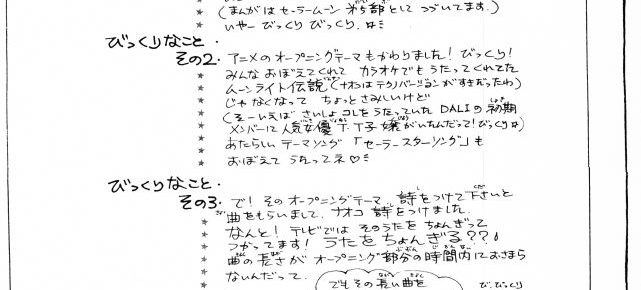 (まんがはセーラームーン 第5部として つづいてます。)
いやー びっくり びっくり。
びっくりなこと・
その2・ アニメのオープニングテーマもかわりました! びっくり!
みんな おぼえてくれて カラオケでもうたってくれてた
ムーンライト伝説 (ナオコはテクノバージョンがすきだったわ)
じゃなくなって ちょっとさみしいけど
(そーいえば さいしょコレをうたっていた DALIの初期
メンバーに人気女優 T・T子嬢がいたんだって! びっくり)
あたらしい テーマソング 「セーラースターソング」も
おぼえて うたってネ♡
びっくりなこと・
その3・ で! そのオープニングテーマ、詩をつけて下さいと
曲をもらいまして、ナオコ 詩をつけました。
なんと! テレビでは そのうたを ちょんぎって
つかってます! うたをちょんぎる???
曲の長さが オープニング部分の時間内におさまら
ないんだって。
でもその長い曲を
び、びっくり